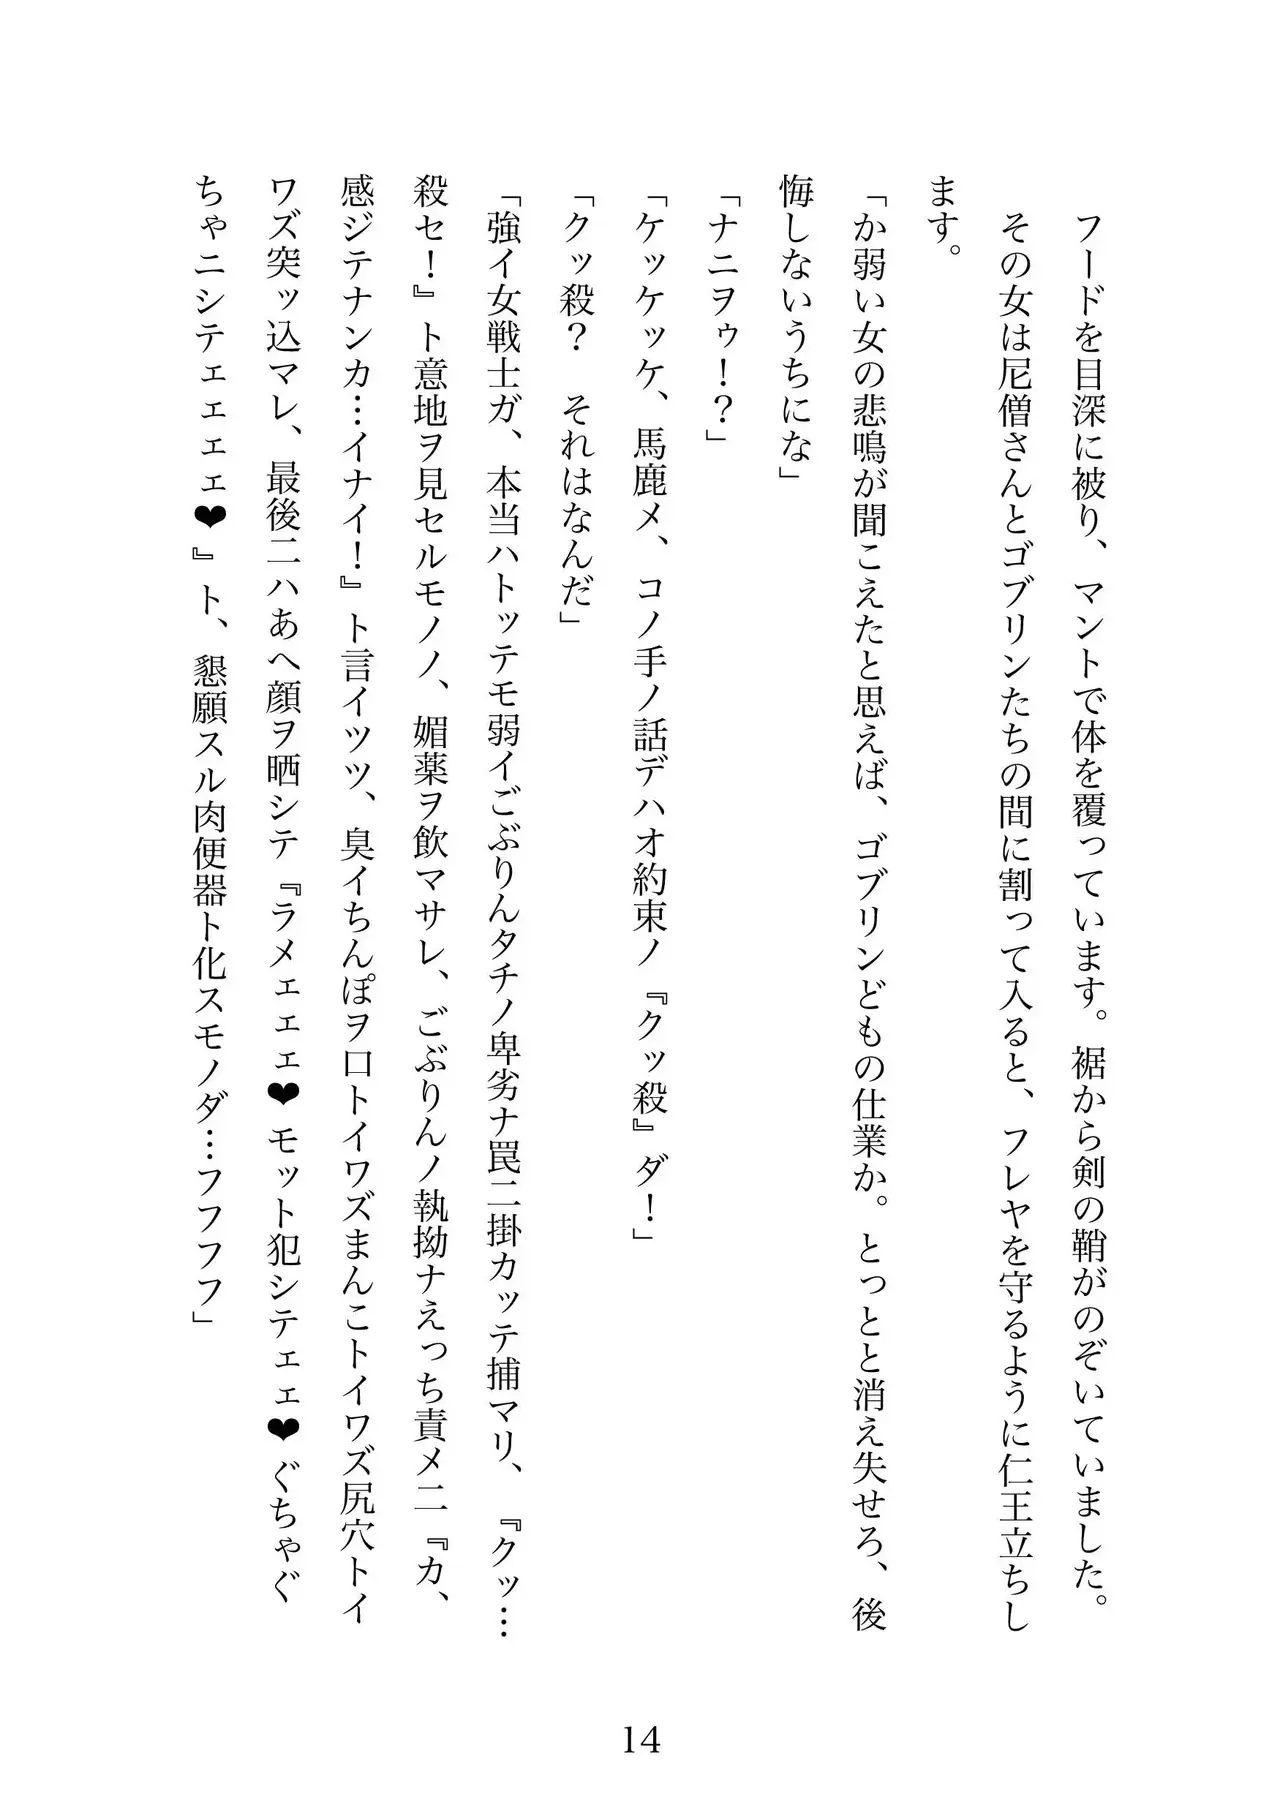 フードを目深に被り、マントで体を覆っています。裾から剣の鞘がのぞいていました。
その女は尼僧さんとゴブリンたちの間に割って入ると、フレヤを守るように仁王立ちし
ます。
「か弱い女の悲鳴が聞こえたと思えば、ゴブリンどもの仕業か。とっとと消え失せろ、後
悔しないうちにな」
「ナニヲゥ！？」
「ケッケッケ、馬鹿メ、コノ手ノ話デハオ約束ノ『クッ殺』ダ！」
「クッ殺？　それはなんだ」
「強イ女戦士ガ、本当ハトッテモ弱イごぶりんタチノ卑劣ナ罠ニ掛カッテ捕マリ、『クッ…
殺セ！』ト意地ヲ見セルモノノ、媚薬ヲ飲マサレ、ごぶりんノ執拗ナえっち責メニ『カ、
感ジテナンカ…イナイ！』ト言イツツ、臭イちんぽヲ口トイワズまんこトイワズ尻穴トイ
ワズ突ッ込マレ、最後ニハあへ顔ヲ晒シテ『ラメェェェ❤モット犯シテェェ❤ぐちゃぐ
ちゃニシテェェェェ❤』ト、懇願スル肉便器ト化スモノダ…フフフフ」
14